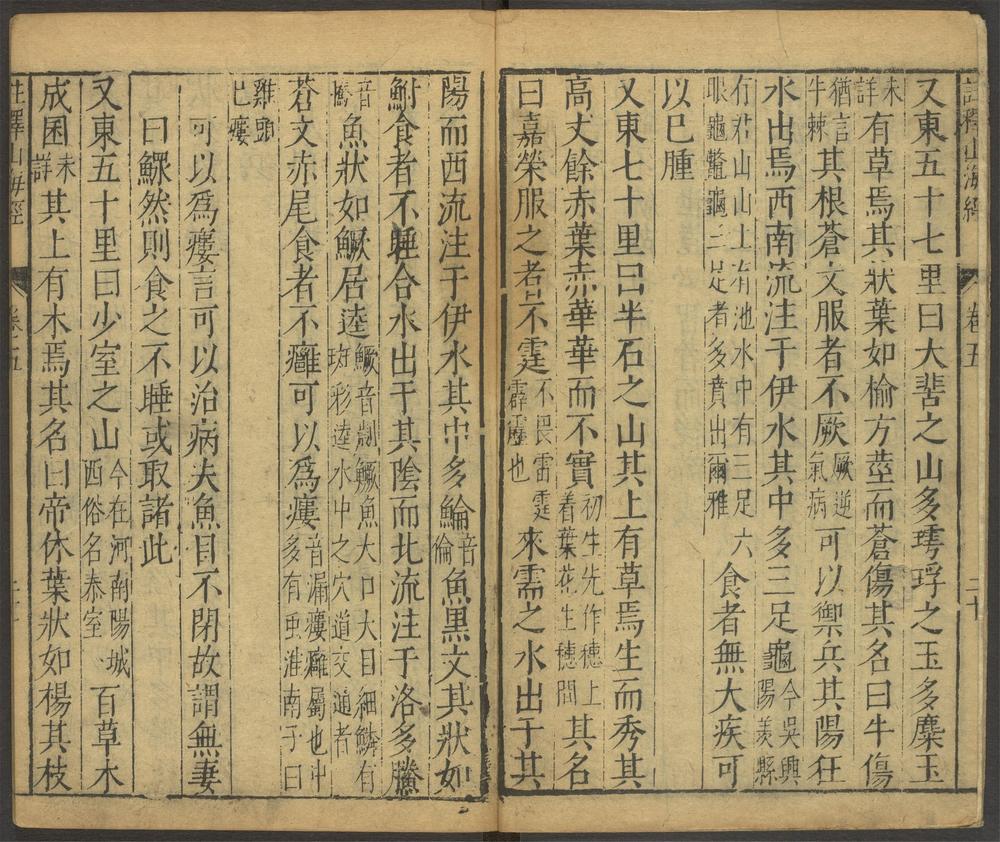 註釋山海經 卷五 二十
又東五十七里曰大䓨之山多㻬琈之玉多麋玉
未詳有草焉其狀葉如榆方莖而蒼傷其名曰牛傷
猶言牛棘其根蒼文服者不厥厥逆氣病可以禦兵其陽狂
水出焉西南流注于伊水其中多三足龜今吳興陽羨縣
有君山山上有池水中有三足六眼龜鼈龜三足者多賁出爾雅食者無大疾可
以已腫
又東七十里曰半石之山其上有草焉生而秀其
高丈餘赤葉赤華華而不實初生先作穗上着葉花生穗間其名
曰嘉榮服之者不霆不畏雷霆霹靂也來需之水出于其
陽而西流注于伊水其中多鯩音倫魚黑文其狀如
鮒食者不睡合水出于其陰而北流注于洛多䲢
音騰魚狀如鱖居逵鱖音劌鱖魚大口大目細鱗有斑彩逵水中之穴道交通者
蒼文赤尾食者不癰可以為瘻音漏瘻癰屬也中多有虫淮南子曰
雞頭已瘻
可以爲瘻言可以治病夫魚目不閉故謂無妻
曰鰥然則食之不睡或取諸此
又東五十里曰少室之山今在河南陽城西俗名泰室百草木
成囷未詳其上有木焉其名曰帝休葉狀如楊其枝
註釋山海經 卷五